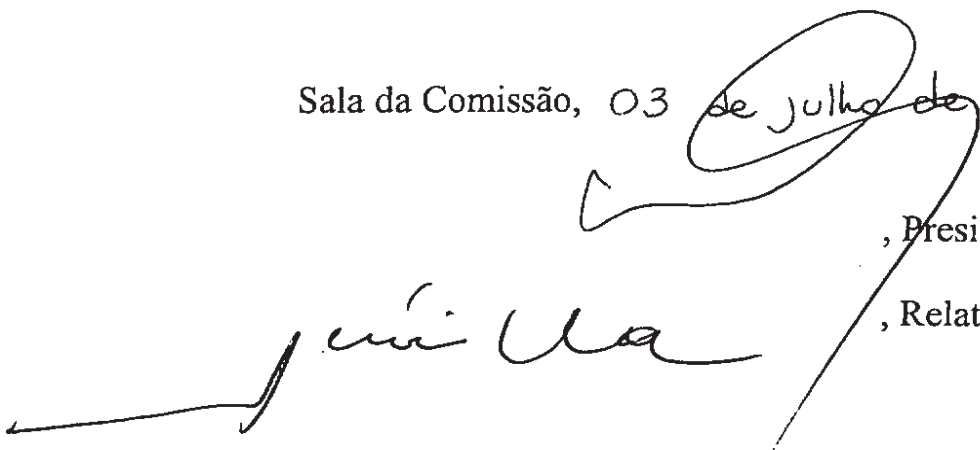 Sala da Comissão, 03 de julho de
, Presi
, Relat